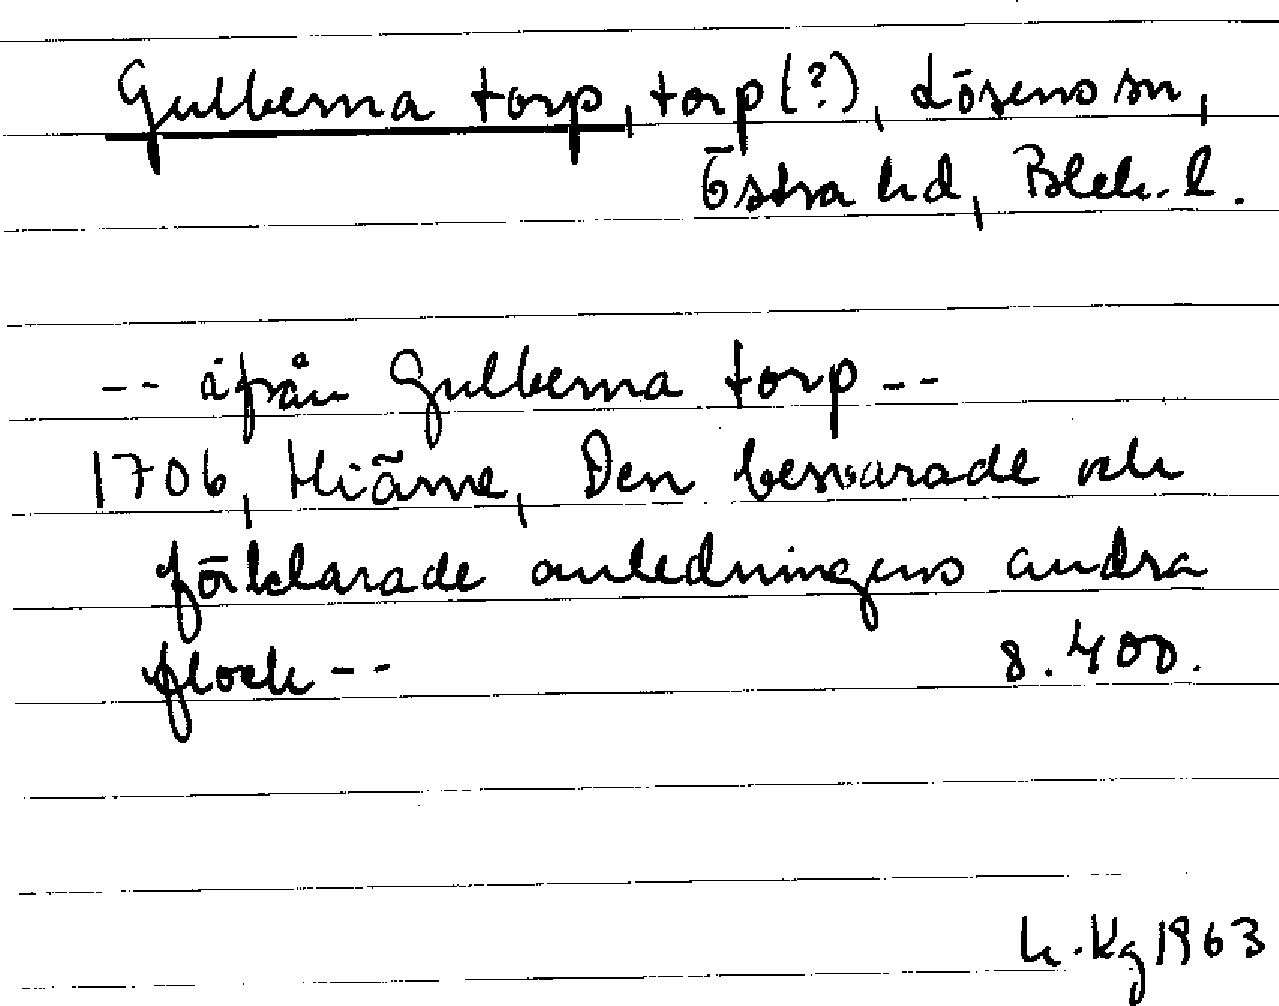 Gullberna torp, torp (?), Lösens sn,
Östra hd, Blek. l.
-- ifrån Gullberna torp --
1706, Hiärne, Den besvarade och
förklarade anledningens andra
flock -- s. 400.
k. Kg 1963